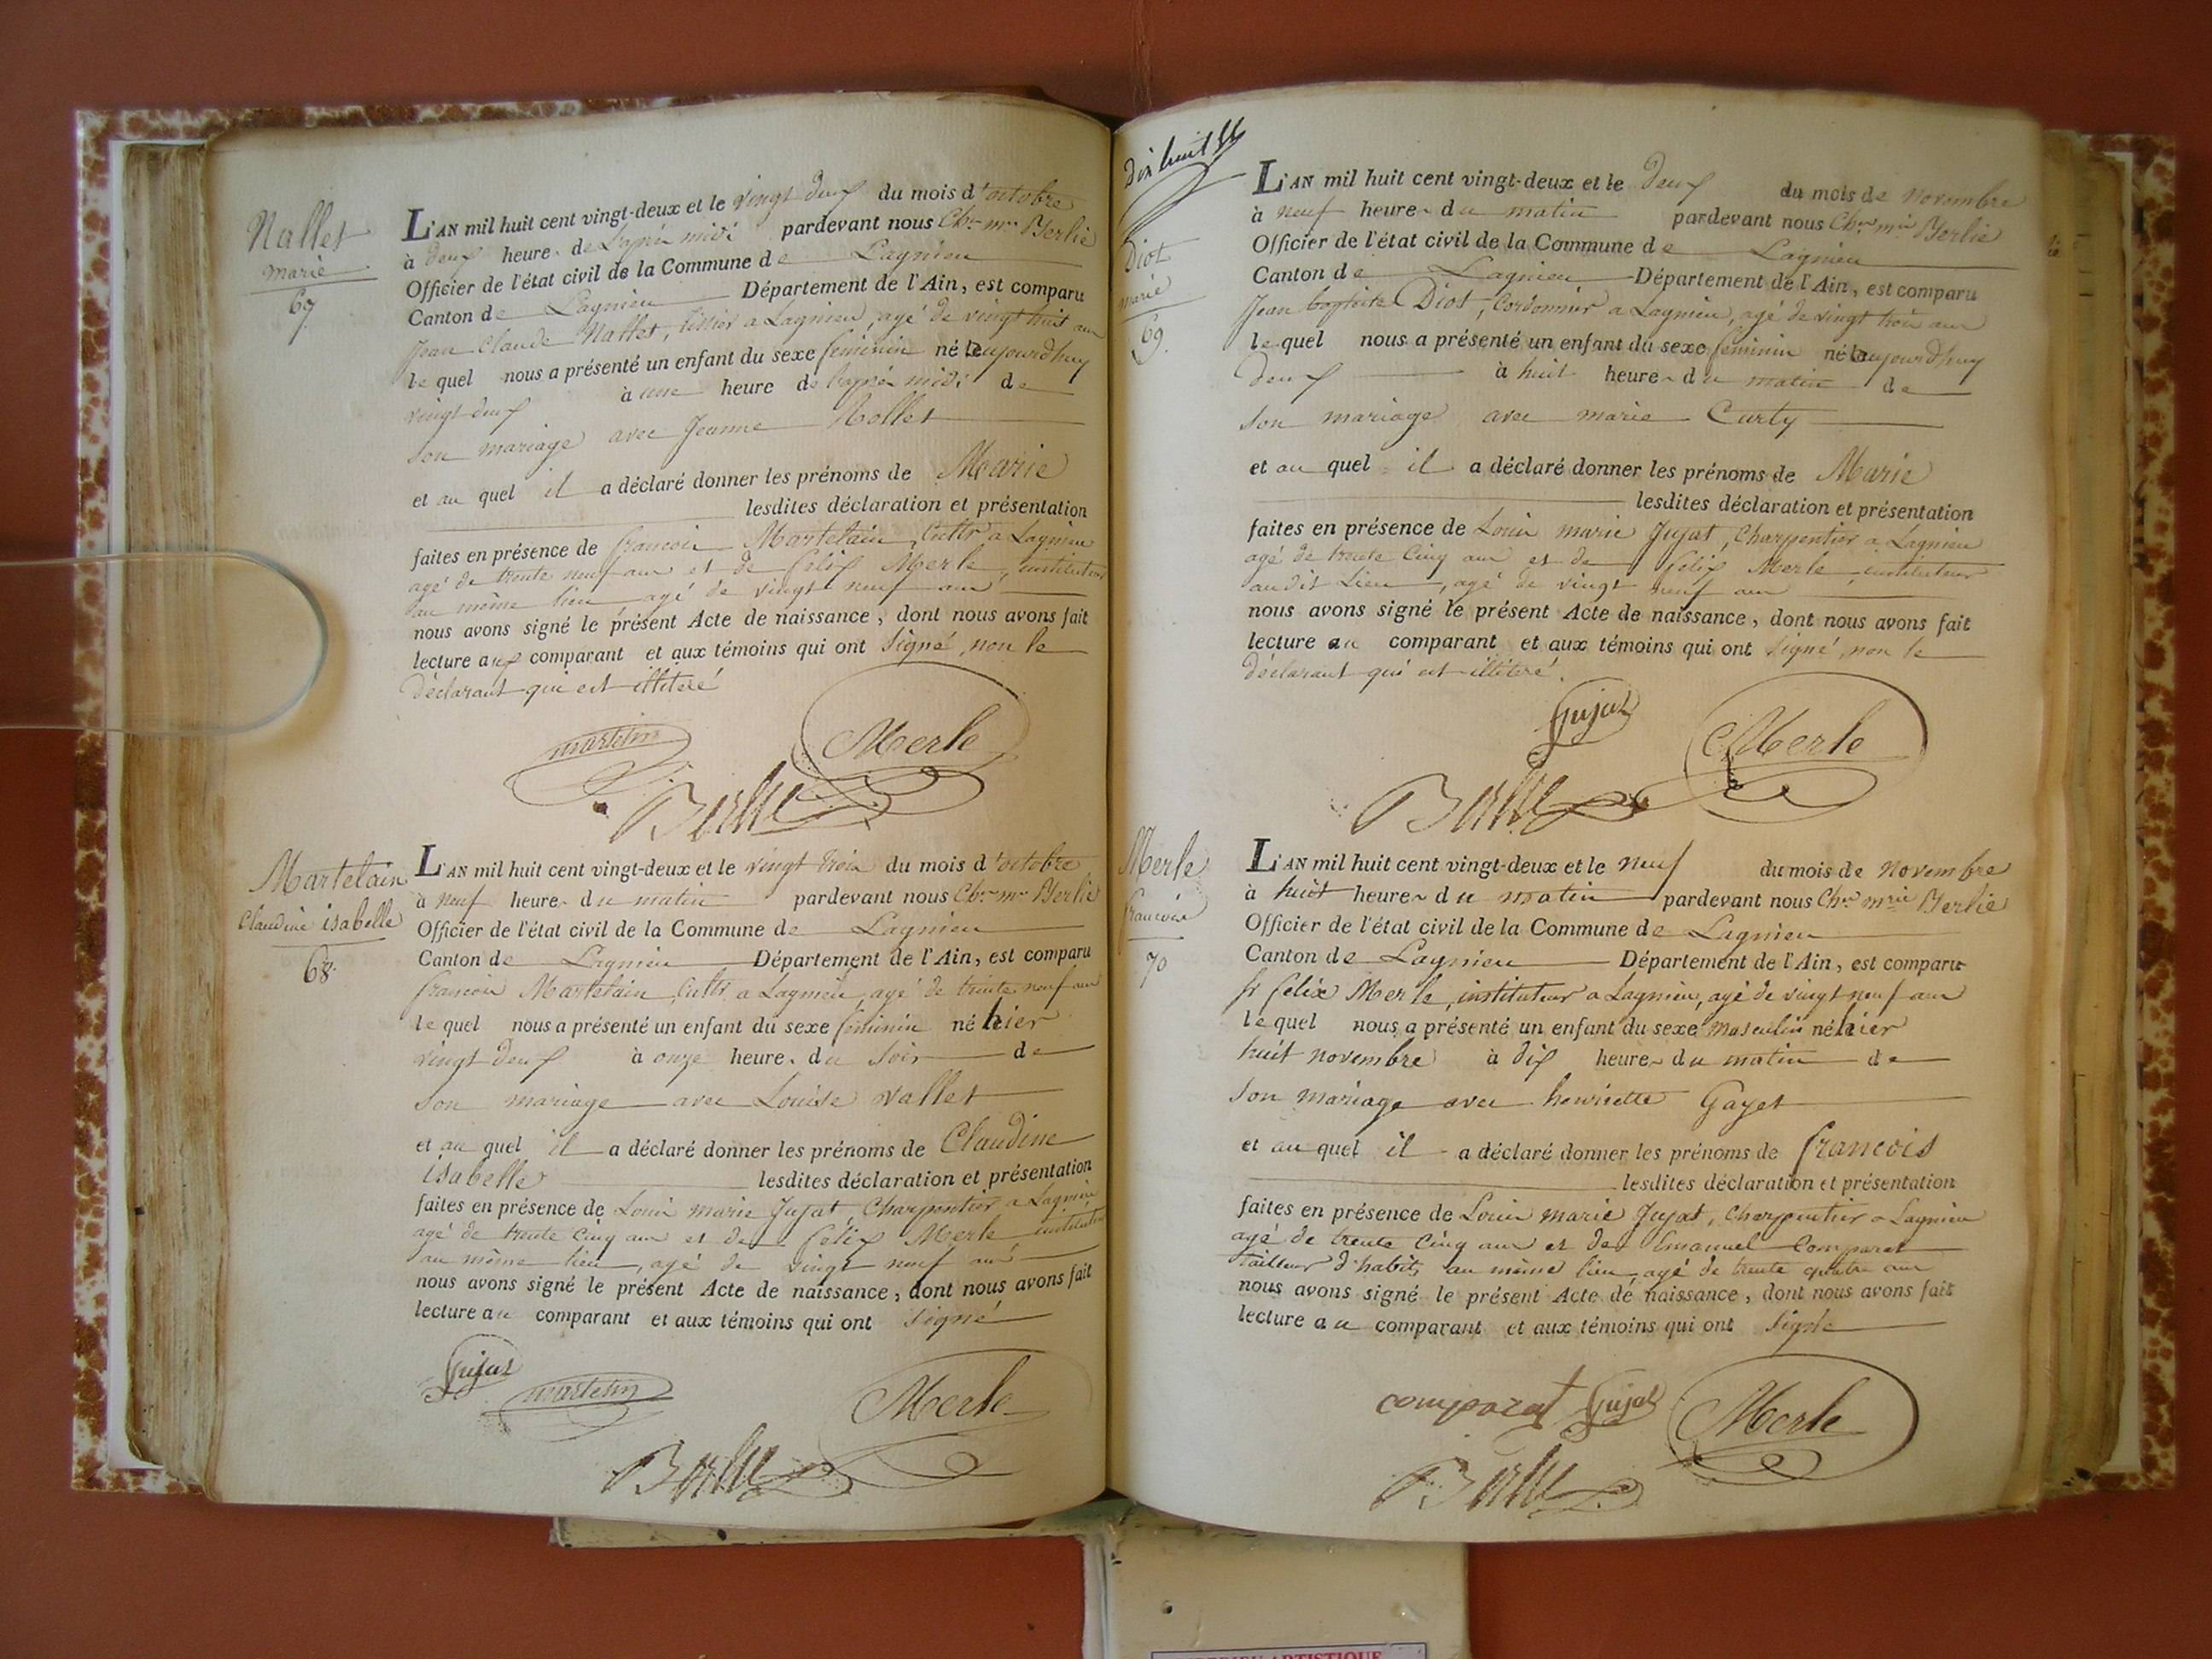 Nallet
marie
67
L'AN mil huit cent vingt-deux et le vingt deux du mois d'octobre
à deux heures de l'aprés midi pardevant nous Chr. mie Berlié
Officier de l'état civil de la Commune de Lagnieu
Canton de Lagnieu Département de l'Ain, est comparu
Jean Claude Nallet, tissier a Lagnieu, agé de vingt huit ans
lequel nous a présenté un enfant du sexe feminin né aujourdhuy
vingt deux à une heure de l'aprés midi de
son mariage avec Jeanne Rollet
et au quel il a déclaré donner les prénoms de Marie
lesdites déclaration et présentation
faites en présence de francois Martelain, Cultr a Lagnieu
agé de trente neuf ans et de felix Merle, instituteur
au même lieu agé de vingt neuf ans
nous avons signé le présent Acte de naissance, dont nous avons fait
lecture aux comparant et aux témoins qui ont signé, non le
déclarant qui est illiteré
martelin Merle
Berlié
Martelain
Claudine isabelle
68
L'AN mil huit cent vingt-deux et le vingt trois du mois d'octobre
à neuf heures du matin pardevant nous Chr. mie Berlié
Officier de l'état civil de la Commune de Lagnieu
Canton de Lagnieu Département de l'Ain, est comparu
francois Martelain, Cultr a Lagnieu, agé de trente neuf ans
lequel nous a présenté un enfant du sexe féminin né hier
vingt deux à onze heures du soir de
son mariage avec Louise vallet
et au quel il a déclaré donner les prénoms de Claudine
isabelle lesdites déclaration et présentation
faites en présence de Louis marie Jujat, Charpentier a Lagnieu
agé de trente cinq ans et de felix Merle instituteur
au même lieu, agé de vingt neuf ans
nous avons signé le présent Acte de naissance, dont nous avons fait
lecture au comparant et aux témoins qui ont signé
Jujat martelin Merle
Berlié
Dix huit
Diot
marie
69.
L'AN mil huit cent vingt-deux et le deux du mois de novembre
à neuf heures du matin pardevant nous Chr. mie Berlié
Officier de l'état civil de la Commune de Lagnieu
Canton de Lagnieu Département de l'Ain, est comparu
Jean baptiste Diot, Cordonnier a Lagnieu, agé de vingt trois ans
lequel nous a présenté un enfant du sexe feminin né aujourdhuy
deux à huit heures du matin de
son mariage avec marie Curty
et au quel il a déclaré donner les prénoms de Marie
lesdites déclaration et présentation
faites en présence de Louis marie Jujat, Charpentier a Lagnieu
agé de trente cinq ans et de felix Merle, instituteur
audit Lieu, agé de vingt neuf ans
nous avons signé le présent Acte de naissance, dont nous avons fait
lecture au comparant et aux témoins qui ont signé, non le
déclarant qui est illiteré.
Jujat Merle
Berlié
Merle
francois
70
L'AN mil huit cent vingt-deux et le neuf du mois de novembre
à huit heures du matin pardevant nous Chr. mie Berlié
Officier de l'état civil de la Commune de Lagnieu
Canton de Lagnieu Département de l'Ain, est comparu
sr felix Merle, instituteur a Lagnieu, agé de vingt neuf ans
lequel nous a présenté un enfant du sexe masculin né hier
huit novembre à dix heures du matin de
son mariage avec henriette Gayet
et au quel il a déclaré donner les prénoms de francois
lesdites déclaration et présentation
faites en présence de Louis marie Jujat, Charpentier a Lagnieu
agé de trente cinq ans et de Emanuel Comparat
tailleur d'habits au même lieu, agé de trente quatre ans
nous avons signé le présent Acte de naissance, dont nous avons fait
lecture au comparant et aux témoins qui ont signé
comparat Jujat Merle
Berlié
ARTISTIQUE